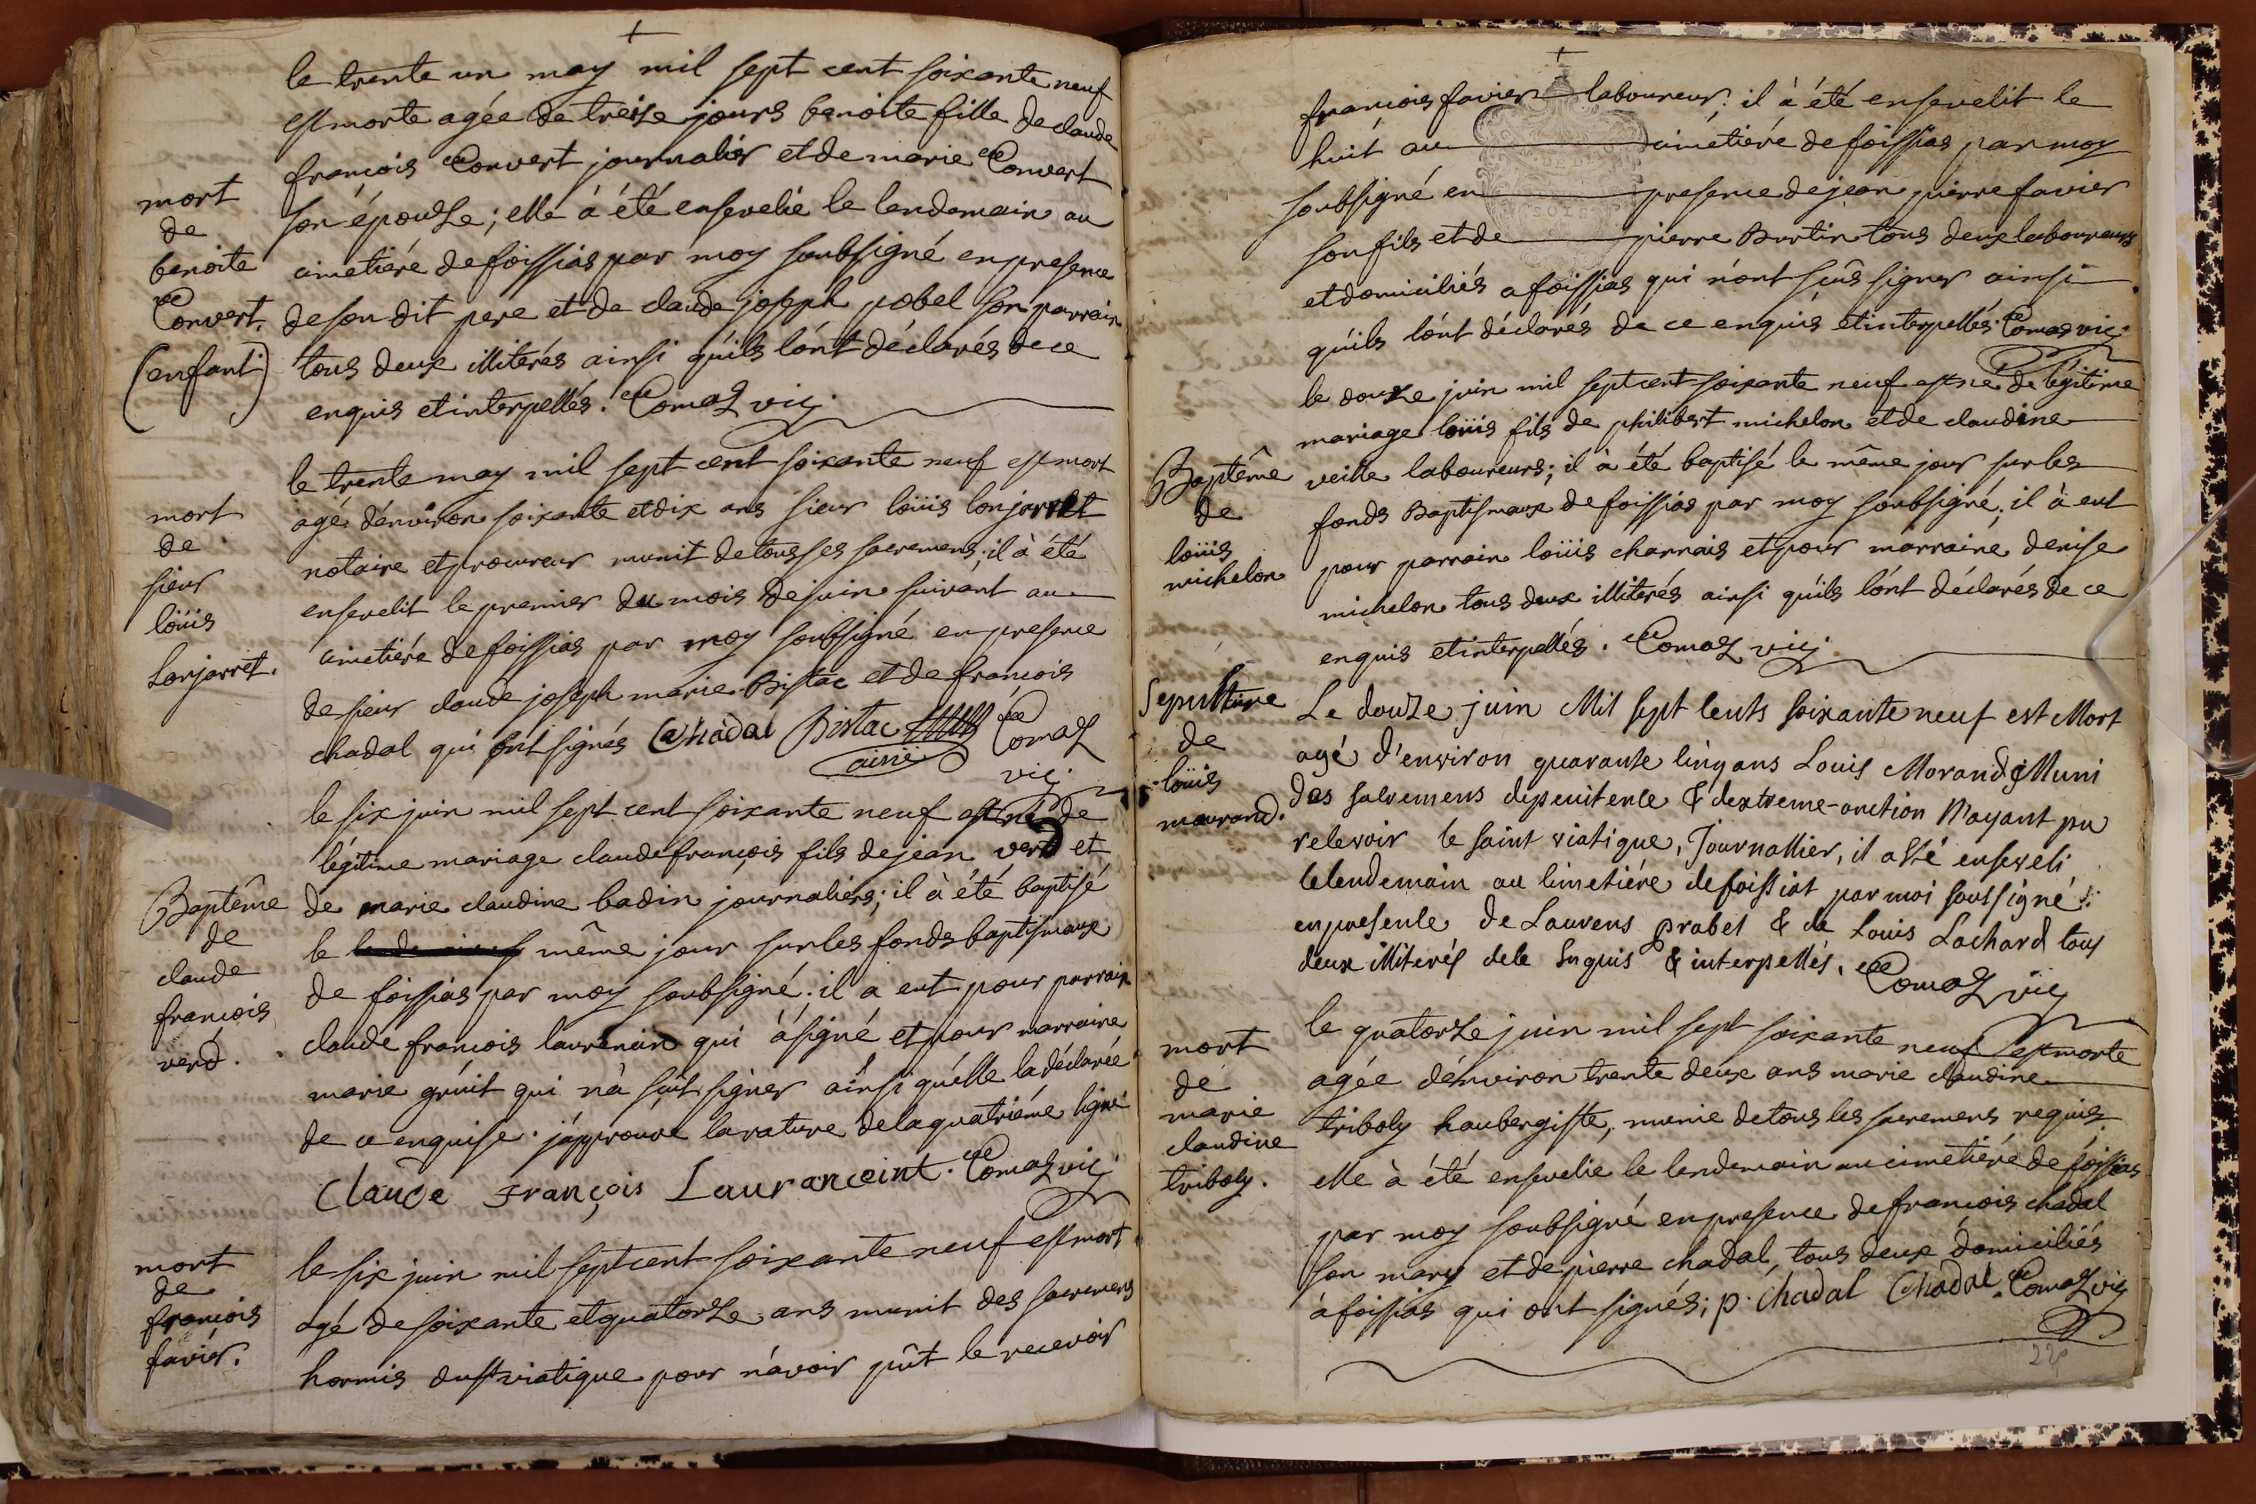 le trente un may mil sept cent soixante neuf
est morte agée de treise jours benoite fille de claude
francois Convert journalier et de marie Convert
mort
son épouse; elle à été ensevelie le lendemain au
de
benoite
cimetiére de foissias par moy soubsigné en presence
Convert.
de son dit pere et de claude joseph pobel son parrain
(enfant)
tous deux illiterés ainsi qu'ils l'ont déclarés de ce
enquis et interpellés. Comas vic.
le trente may mil sept cent soixante neuf est mort
mort
agé d'environ soixante et dix ans sieur loüis lonjarret
de
notaire et procureur munit de tous ses sacremens; il à été
sieur
ensevelit le premier du mois de juin suivant au
loüis
cimetiére de foissias par moy soubsigné en presence
Lonjarret.
de sieur claude joseph marie Bistac et de francois
chadal qui ont signés Chadal Bistac Comas
ainé
vic.
le six juin mil sept cent soixante neuf est né de
légitime mariage claude françois fils de jean verd et
Baptême
de marie claudine badin journaliers; il à été baptisé
de
le même jour sur les fonds baptismaux
claude
de foissias par moy soubsigné; il a eut pour parrain
francois
claude francois laurencin qui à signé et pour marraine
verd.
marie gruit qui n'à sçût signer ainsi qu'elle la déclarée
de ce enquise. j'approuve la rature de la quatriéme ligne
Claude François Lauranceint. Comas vic.
le six juin mil sept cent soixante neuf est mort
mort
de
agé de soixante et quatorse ans munit des sacremens
francois
favier.
hormis du st viatique pour n'avoir pût le recevoir
francois favier laboureur. il à été ensevelit le
huit au cimétiére de foissias par moy
soubsigné en presence de jean pierre favier
son fils et de pierre Burtin tous deux laboureurs
et domiciliés a foissias qui n'ont sçûs signer ainsi
qu'ils l'ont déclarés de ce enquis et interpellés. Comas vic.
le douze juin mil sept cent soixante neuf est né de légitime
mariage loüis fils de philibert michelon et de claudine
Baptême
veille laboureurs; il à été baptisé le même jour sur les
de
fonds Baptismaux de foissias par moy soubsigné; il à eut
loüis
pour parrain loüis charnais et pour marraine denise
michelon
michelon tous deux illiterés ainsi qu'ils l'ont déclarés de ce
enquis et interpellés. Comas vic.
Sepulture
Le douze juin Mil sept cents soixante neuf est Mort
de
agé d'environ quarante cinq ans Louis Morand Muni
loüis
des sacremens de penitence & d'extreme-onction N'ayant pu
maurand.
recevoir le saint viatique, Journallier, il a été enseveli
le lendemain au cimetiére de foissiat par moi soussigné
en presence de Laurens Prabel & de Louis Lachard tous
deux illiterés de ce Enquis & interpellés. Comas vic
le quatorse juin mil sept soixante neuf est morte
mort
agée d'environ trente deux ans marie claudine
de
marie
triboly haubergiste, munie de tous les sacremens requis.
claudine
elle à été ensevelie le lendemain au cimetiére de foissias
triboly.
par moy soubsigné en presence de francois chadal
son mary et de pierre chadal, tous deux domiciliés
à foissias qui ont signés; p. chadal Chadal. Comas vic